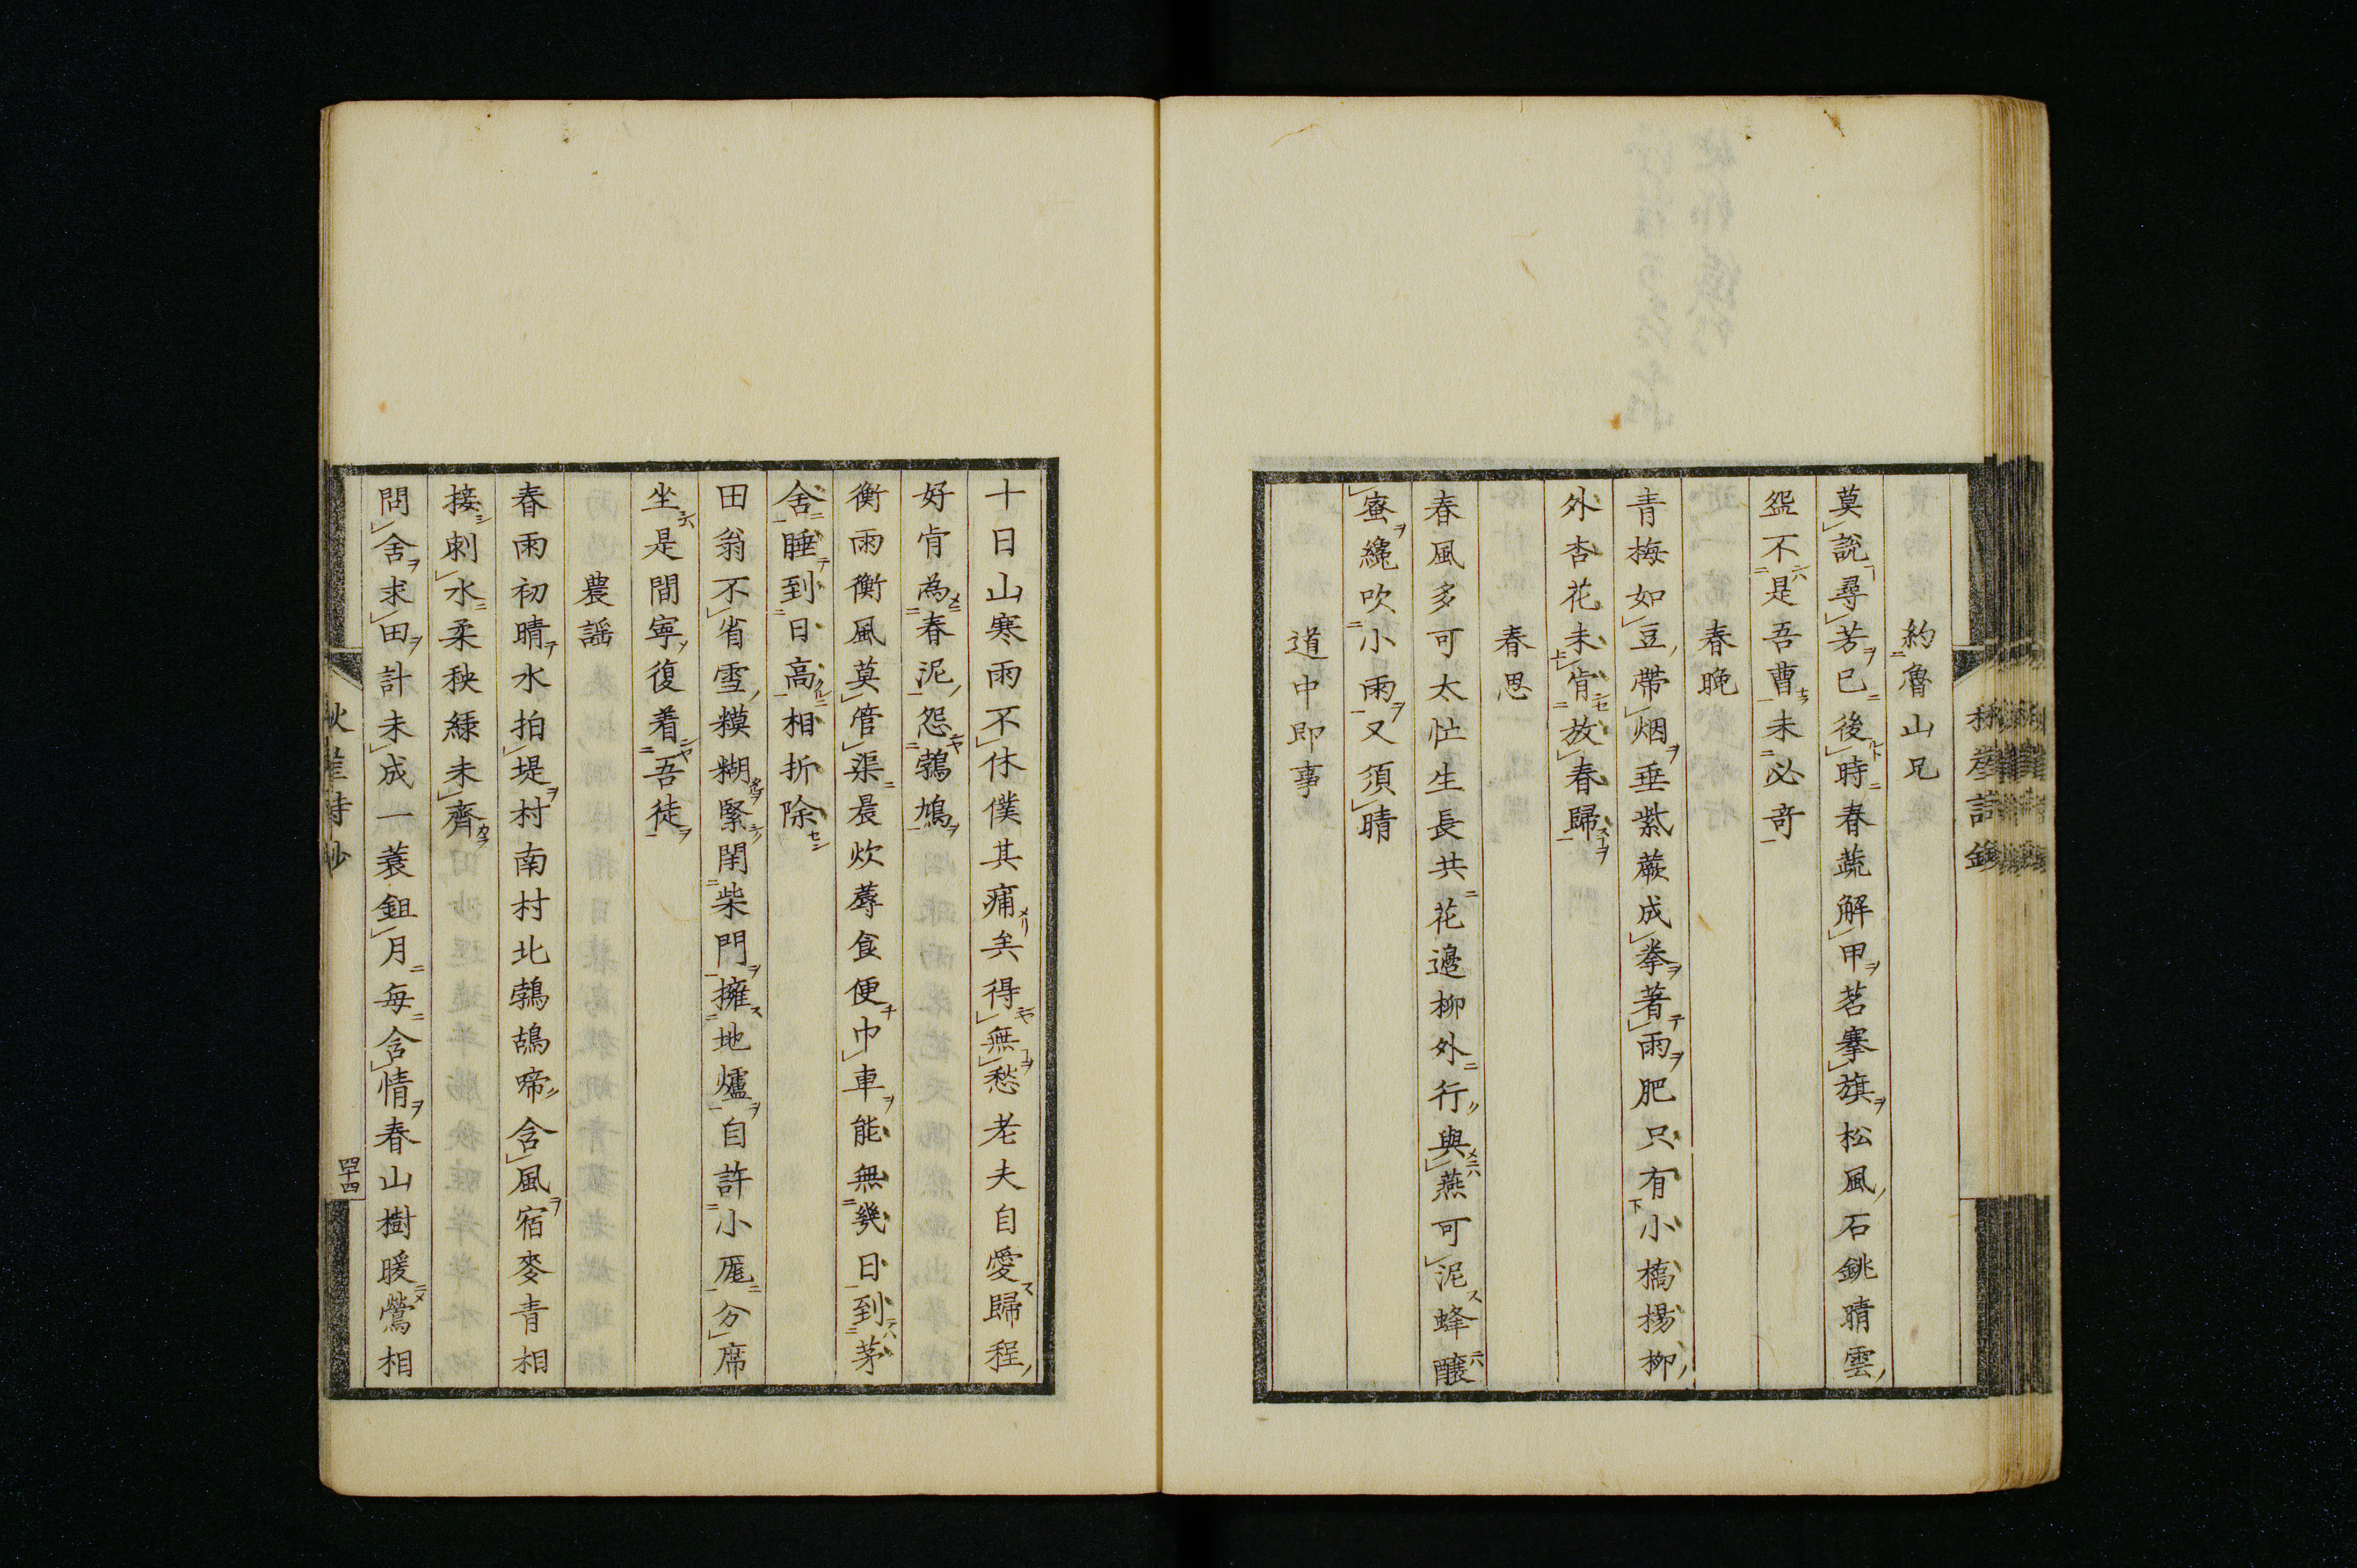 約魯山兄
莫說尋芳已後時春蔬解甲茗搴旗松風石銚晴雲
盌不是吾曹未必奇
春晚
青梅如豆帶烟垂紫蕨成拳著雨肥只有小橋楊柳
外杏花未肯放春歸
春思
春風多可太忙生長共花邊柳外行與燕可泥蜂釀
蜜纔吹小雨又須晴
道中即事
十日山寒雨不休僕其痡矣得無愁老夫自愛歸程
好肯為春泥怨鵓鳩
衡雨衡風莫管渠晨炊蓐食便巾車能無幾日到茅
舍睡到日高相折除
田翁不省雪糢糊緊閉柴門擁地爐自許小厖分席
坐是間寧復着吾徒
農謡
春雨初晴水拍堤村南村北鵓鴣啼含風宿麥青相
接刺水柔秧綠未齊
問舍求田計未成一蓑鉏月每含情春山樹暖鶯相
秋崖詩鈔
四十四